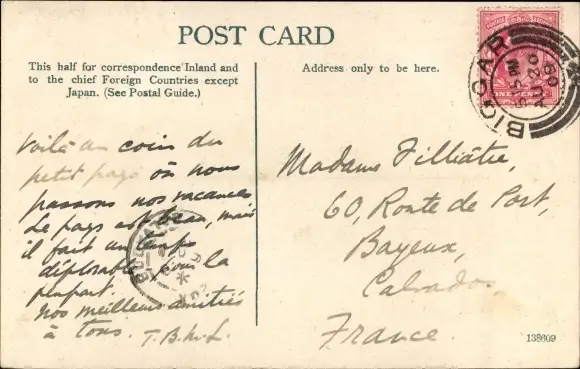 POST CARD
This half for correspondence Inland and
to the chief Foreign Countries except
Japan. (See Postal Guide.)
Address only to be here.
BIGGAR
5 PM
AU 20
09
ONE PENNY
Voilà un coin du
petit pays où nous
passons nos vacances
Le pays est beau, mais
il fait un temps
déplorable pour la
plupart.
Nos meilleurs amitiés
à tous. T.B.M.L.
Madame Filliâtre,
60, Route de Port,
Bayeux,
Calvados,
France.
138609